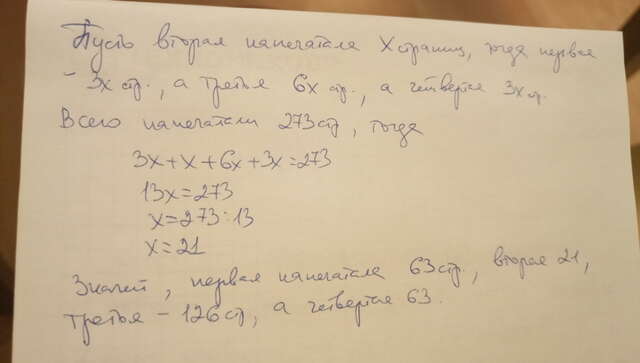 Пусть вторая напечатала X страниц, тогда первая
- 3x стр., а третья 6x стр., а четвертая 3x стр.
Всего напечатали 273 стр, тогда
3x+x+6x+3x=273
13x=273
x=273:13
x=21
Значит, первая напечатала 63 стр., вторая 21,
третья - 126 ст, а четвертая 63.